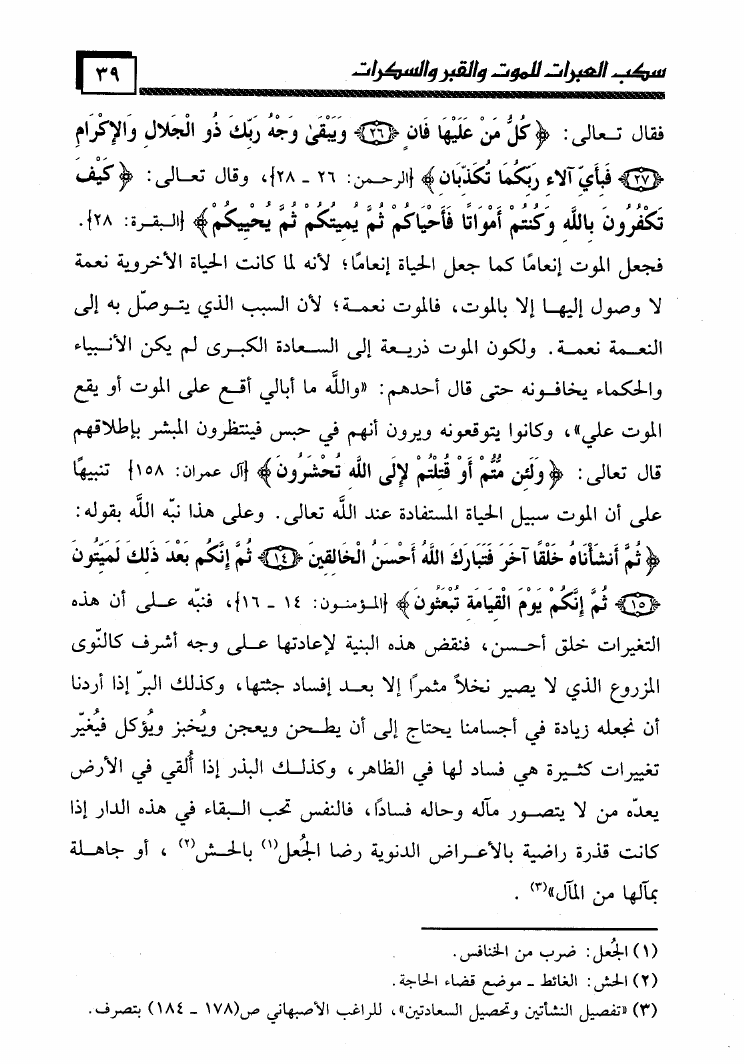 سكب العبرات للموت والقبر والسكرات
٣٩
فقال تـعـالى: ﴿ كُلُّ مَنْ عَلَيْهَا فَانٍ ﴿٢٦﴾ وَيَبْقَىٰ وَجْهُ رَبِّكَ ذُو الْجَلالِ وَالإِكْرَامِ
﴿٢٧﴾ فَبِأَيِّ آلاءِ رَبِّكُمَا تُكَذِّبَانِ ﴾ {الرحـمن: ٢٦ ـ ٢٨}، وقال تعـالى: ﴿ كَيْفَ
تَكْفُرُونَ بِاللَّهِ وَكُنتُمْ أَمْوَاتًا فَأَحْيَاكُمْ ثُمَّ يُمِيتُكُمْ ثُمَّ يُحْيِيكُمْ ﴾ {البـقـرة: ٢٨}.
فجعل الموت إنعامًا كما جعل الحياة إنعامًا؛ لأنه لما كانت الحياة الأخروية نعمة
لا وصول إليهـا إلا بالموت، فالموت نعمـة؛ لأن السبب الذي يتـوصّل به إلى
النعـمة نعمـة. ولكون الموت ذريـعة إلى السـعادة الكبـرى لم يكن الأنـبياء
والحكماء يخافـونه حتى قال أحدهم: «واللَّه ما أبالي أقـع على الموت أو يقع
الموت علي»، وكانوا يتوقعونه ويرون أنهم في حبس فينتظرون المبشر بإطلاقهم
قال تعالى: ﴿ وَلَئِن مُّتُّمْ أَوْ قُتِلْتُمْ لإِلَى اللَّهِ تُحْشَرُونَ ﴾ {آل عمران: ١٥٨} تنبيهًا
على أن الموت سبيل الحياة المستفادة عند اللَّه تعالى. وعلى هذا نبّه اللَّه بقوله:
﴿ ثُمَّ أَنشَأْنَاهُ خَلْقًا آخَرَ فَتَبَارَكَ اللَّهُ أَحْسَنُ الْخَالِقِينَ ﴿١٤﴾ ثُمَّ إِنَّكُم بَعْدَ ذَلِكَ لَمَيِّتُونَ
﴿١٥﴾ ثُمَّ إِنَّكُمْ يَوْمَ الْقِيَامَةِ تُبْعَثُونَ ﴾ {المـؤمنـون: ١٤ ـ ١٦}، فنبّه عـلى أن هذه
التغيرات خلق أحـسن، فنقض هذه البنية لإعادتها عـلى وجه أشرف كالنّوى
المزروع الذي لا يصير نخلاً مثمرًا إلا بعـد إفساد جثتها، وكذلك البرّ إذا أردنا
أن نجعله زيادة في أجسامنا يحتاج إلى أن يطـحن ويعجن ويُخبز ويُؤكل فيُغيّر
تغييرات كثـيرة هي فساد لها في الظاهر، وكذلـك البذر إذا أُلقي في الأرض
يعدّه من لا يتصـور مآله وحاله فسادًا، فالنفس تحب الـبقاء في هذه الدار إذا
كانت قذرة راضية بالأعـراض الدنوية رضا الجُعل(١) بالحـش(٢) ، أو جاهـلة
بمآلها من المآل»(٣) .
(١) الجُعل: ضرب من الخنافس.
(٢) الحش: الغائط ـ موضع قضاء الحاجة.
(٣) «تفصيل النشأتين وتحصيل السعادتين»، للراغب الأصبهاني ص(١٧٨ ـ ١٨٤) بتصرف.